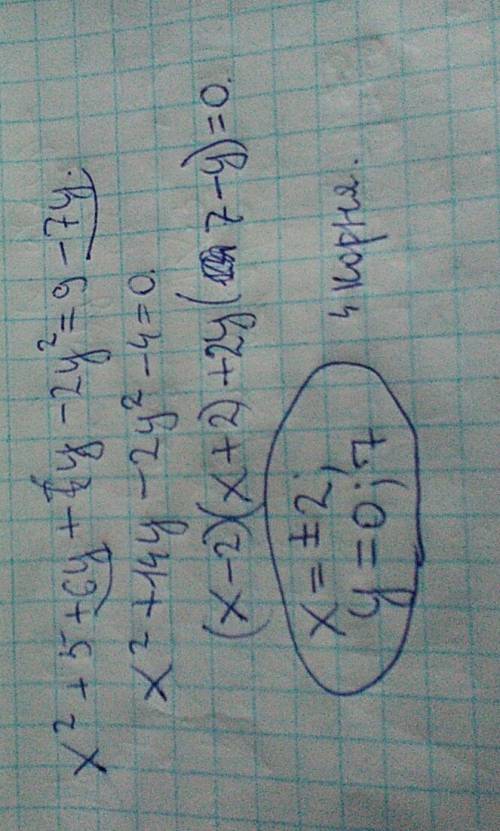 x² + 5 + 6y + 1y - 2y² = 9 - 7y.
x² + 14y - 2y² - 4 = 0.
(x - 2)(x + 2) + 2y(7 - y) = 0.
x = ±2;
y = 0; 7
4 корня.